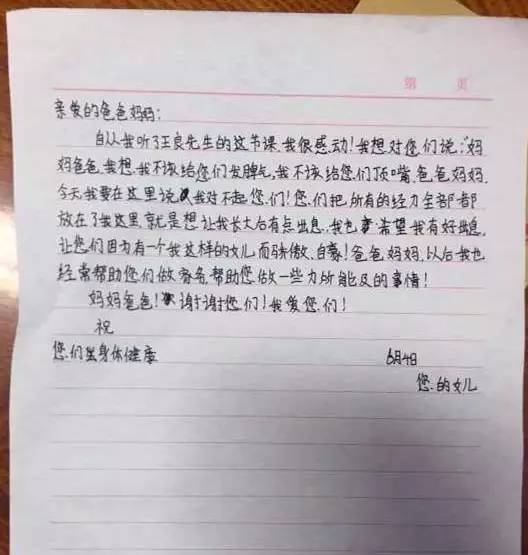 第 页
亲爱的爸爸妈妈:
自从我听了王良先生的这节课,我很感动!我想对您们说:“妈
妈爸爸,我想,我不该给您们发脾气,我不该给您们顶嘴,爸爸妈妈,
今天我要在这里说,我对不起您们!您们把所有的经力全部都
放在了我这里,就是想让我长大后有点出息,我也希望我有好出息,
让您们因为有一个我这样的女儿而骄傲、自豪!爸爸妈妈,以后我也
经常帮助您们做家务,帮助您做一些力所能及的事情!
妈妈爸爸!谢谢您们!我爱您们!
祝
您们身体健康
6月4日
您的女儿